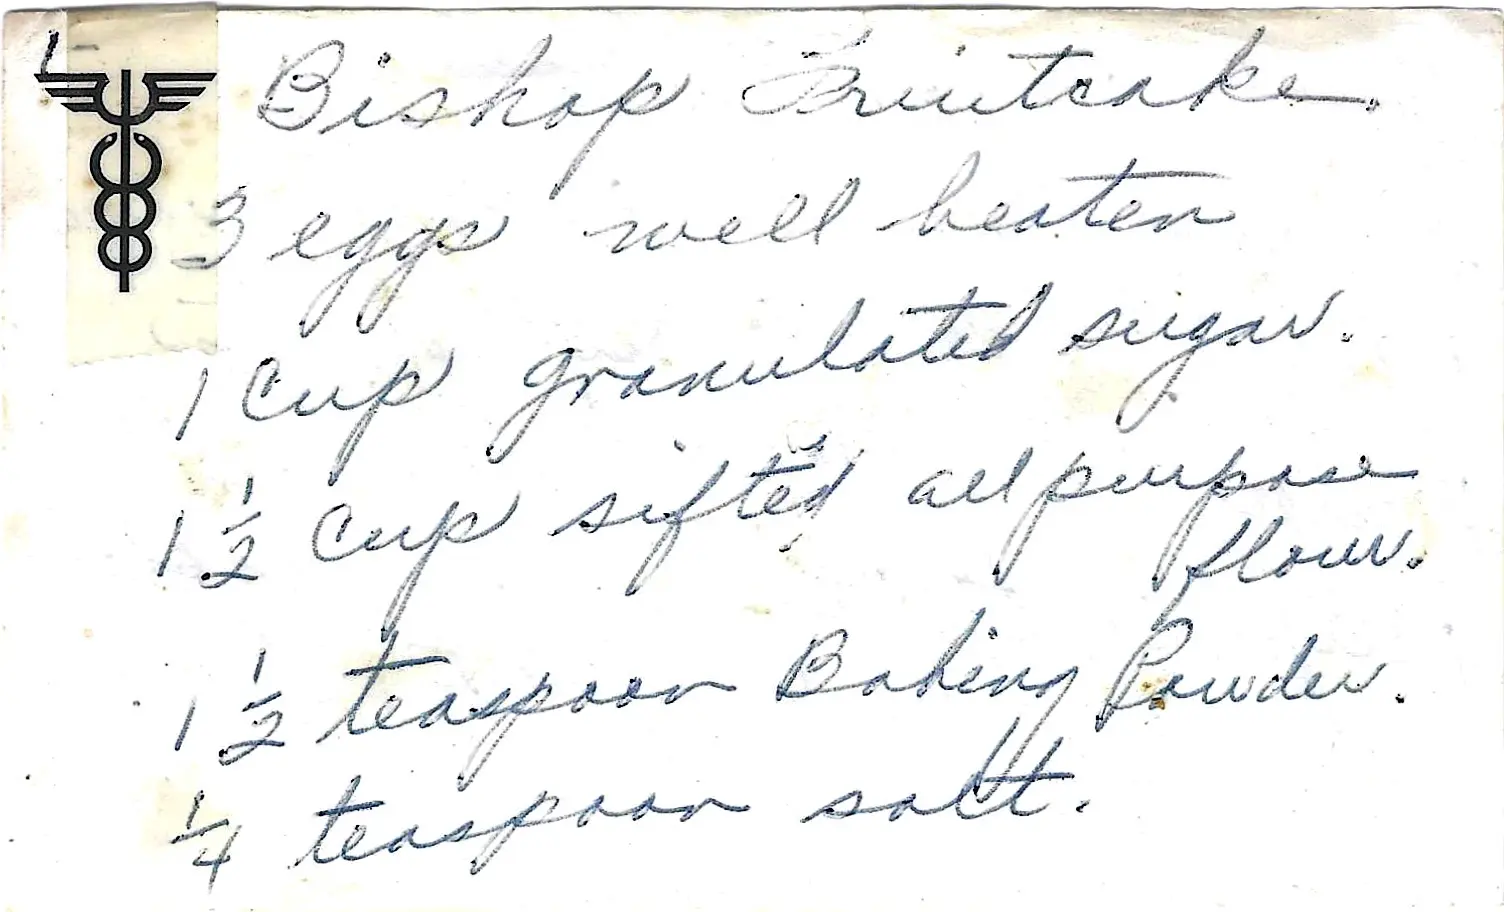 1-
Bishop Fruitcake.
3 eggs well beaten
1 cup granulated sugar.
1 1/2 cup sifted all purpose
flour.
1 1/2 teaspoon Baking Powder.
1/4 teaspoon salt.